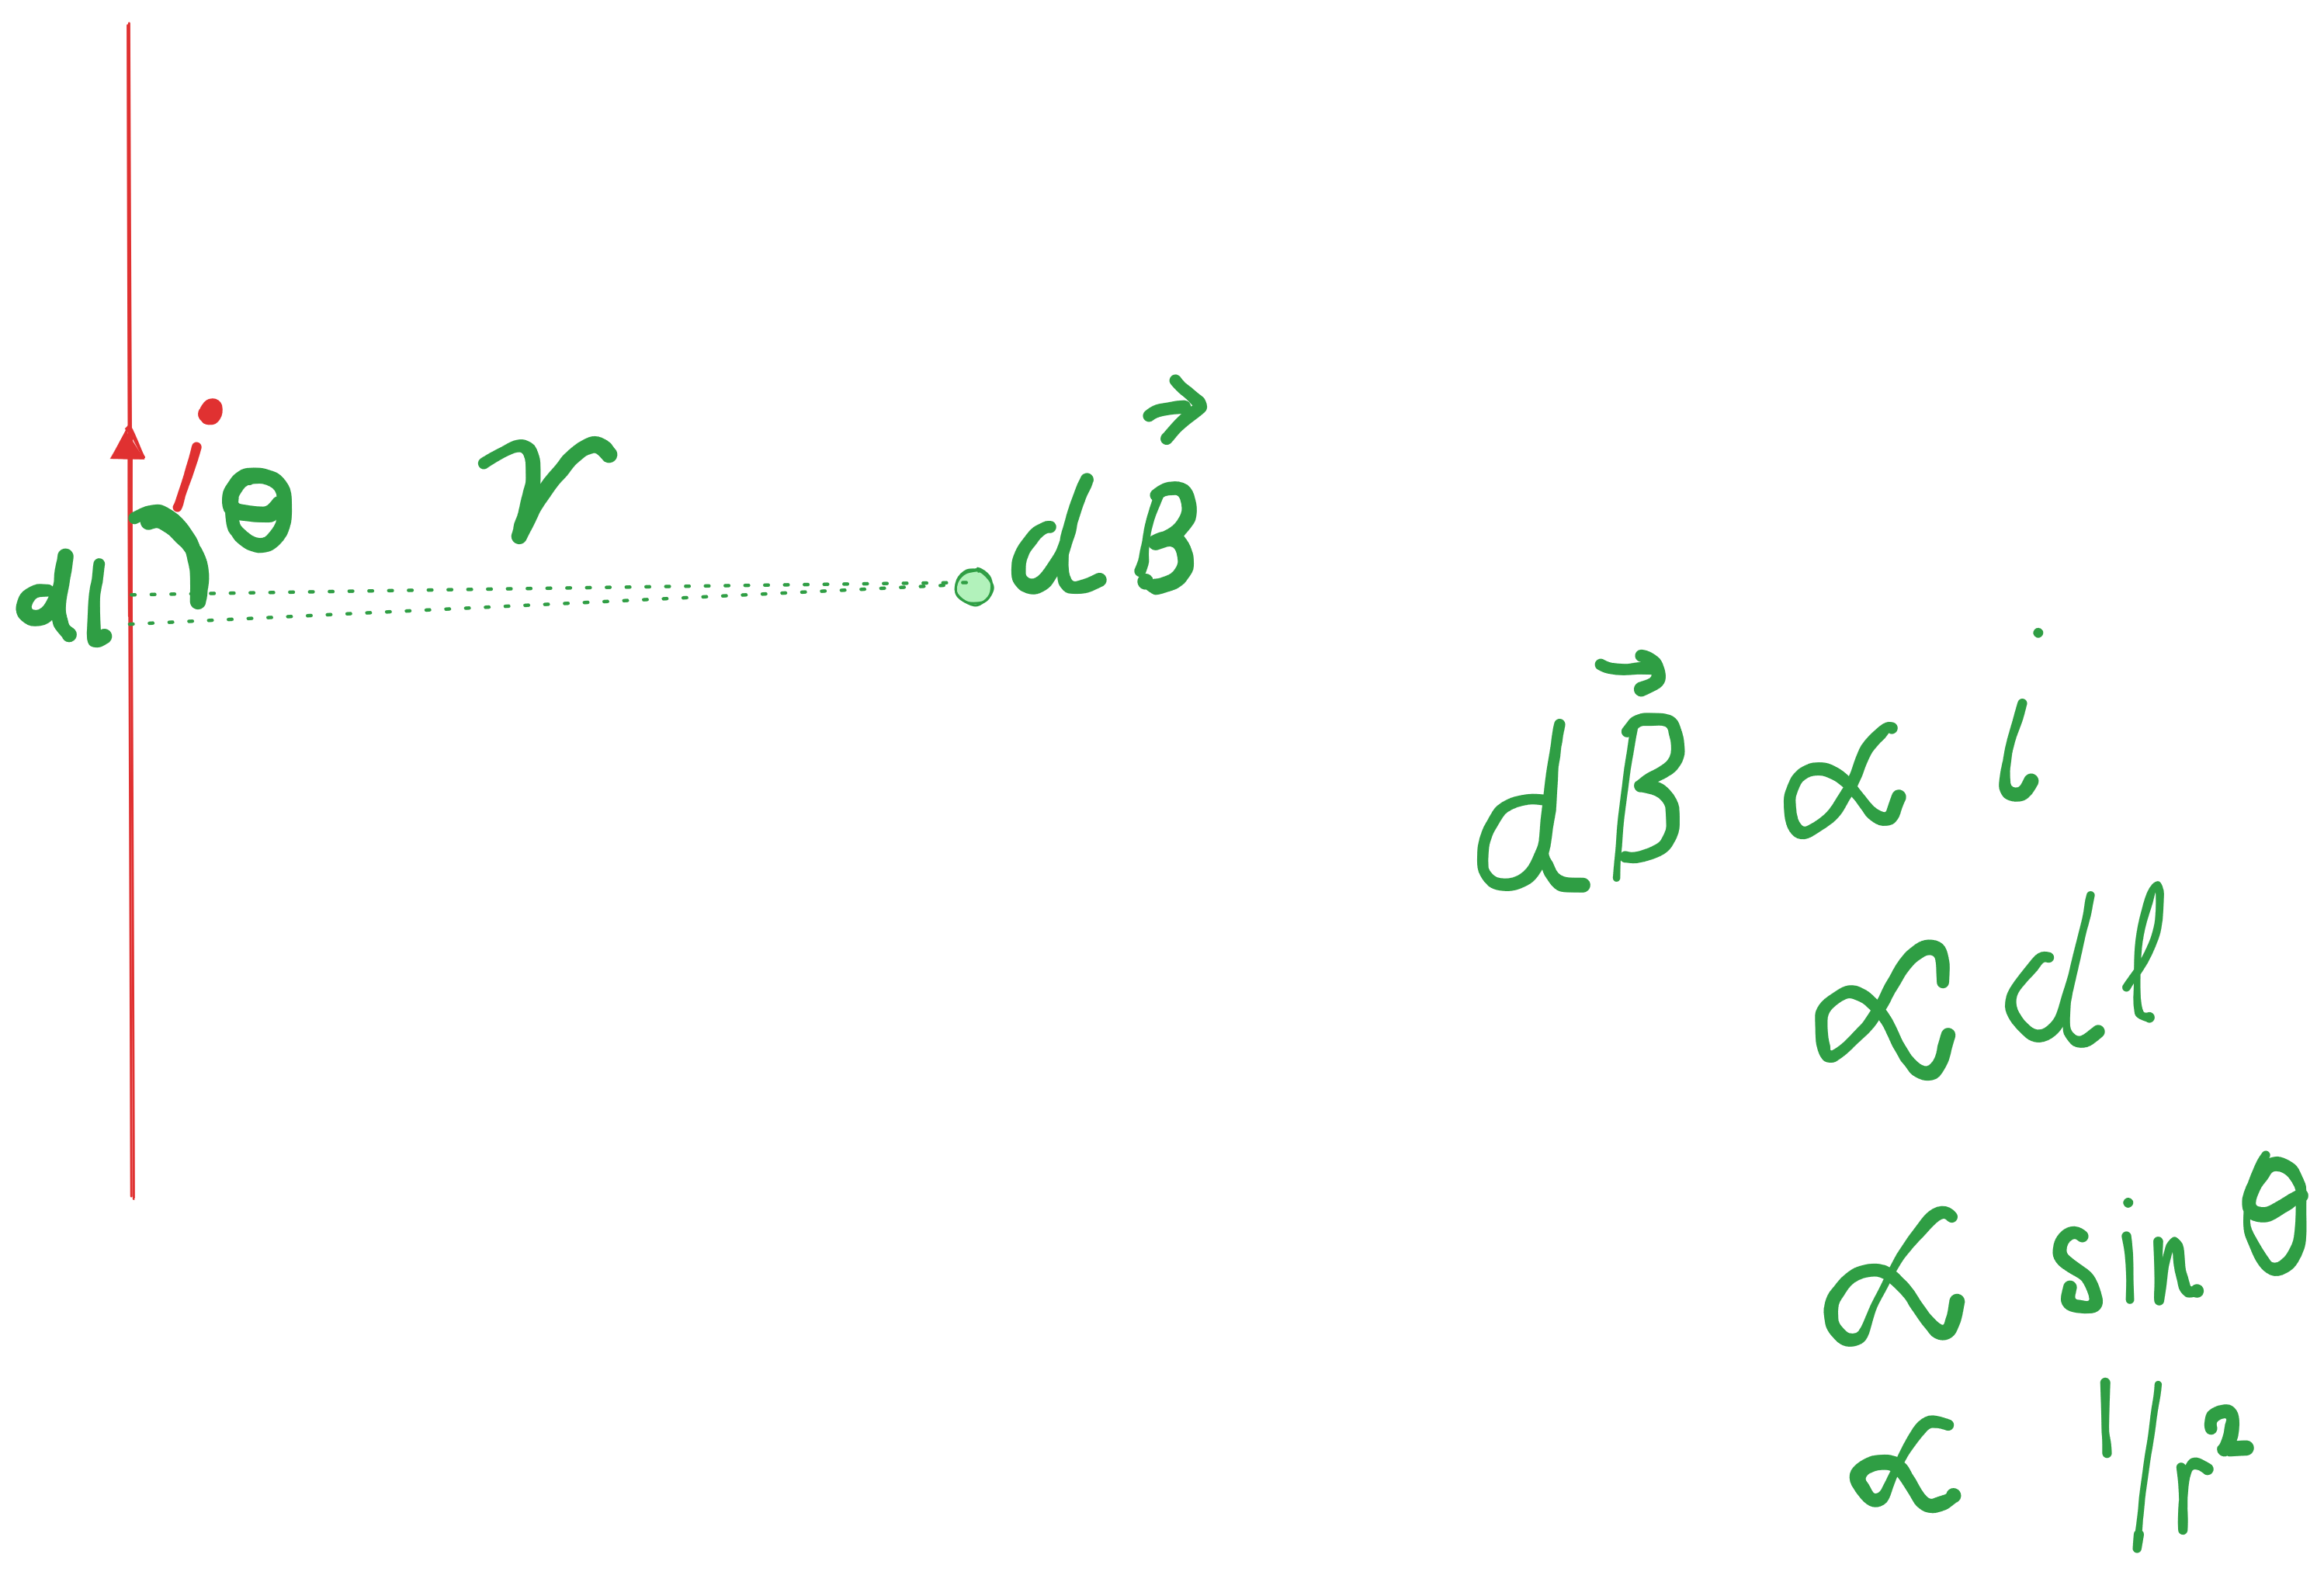 i
θ
r
dB⃗
dl
dB⃗ ∝ i
∝ dl
∝ sin θ
∝ 1/r²